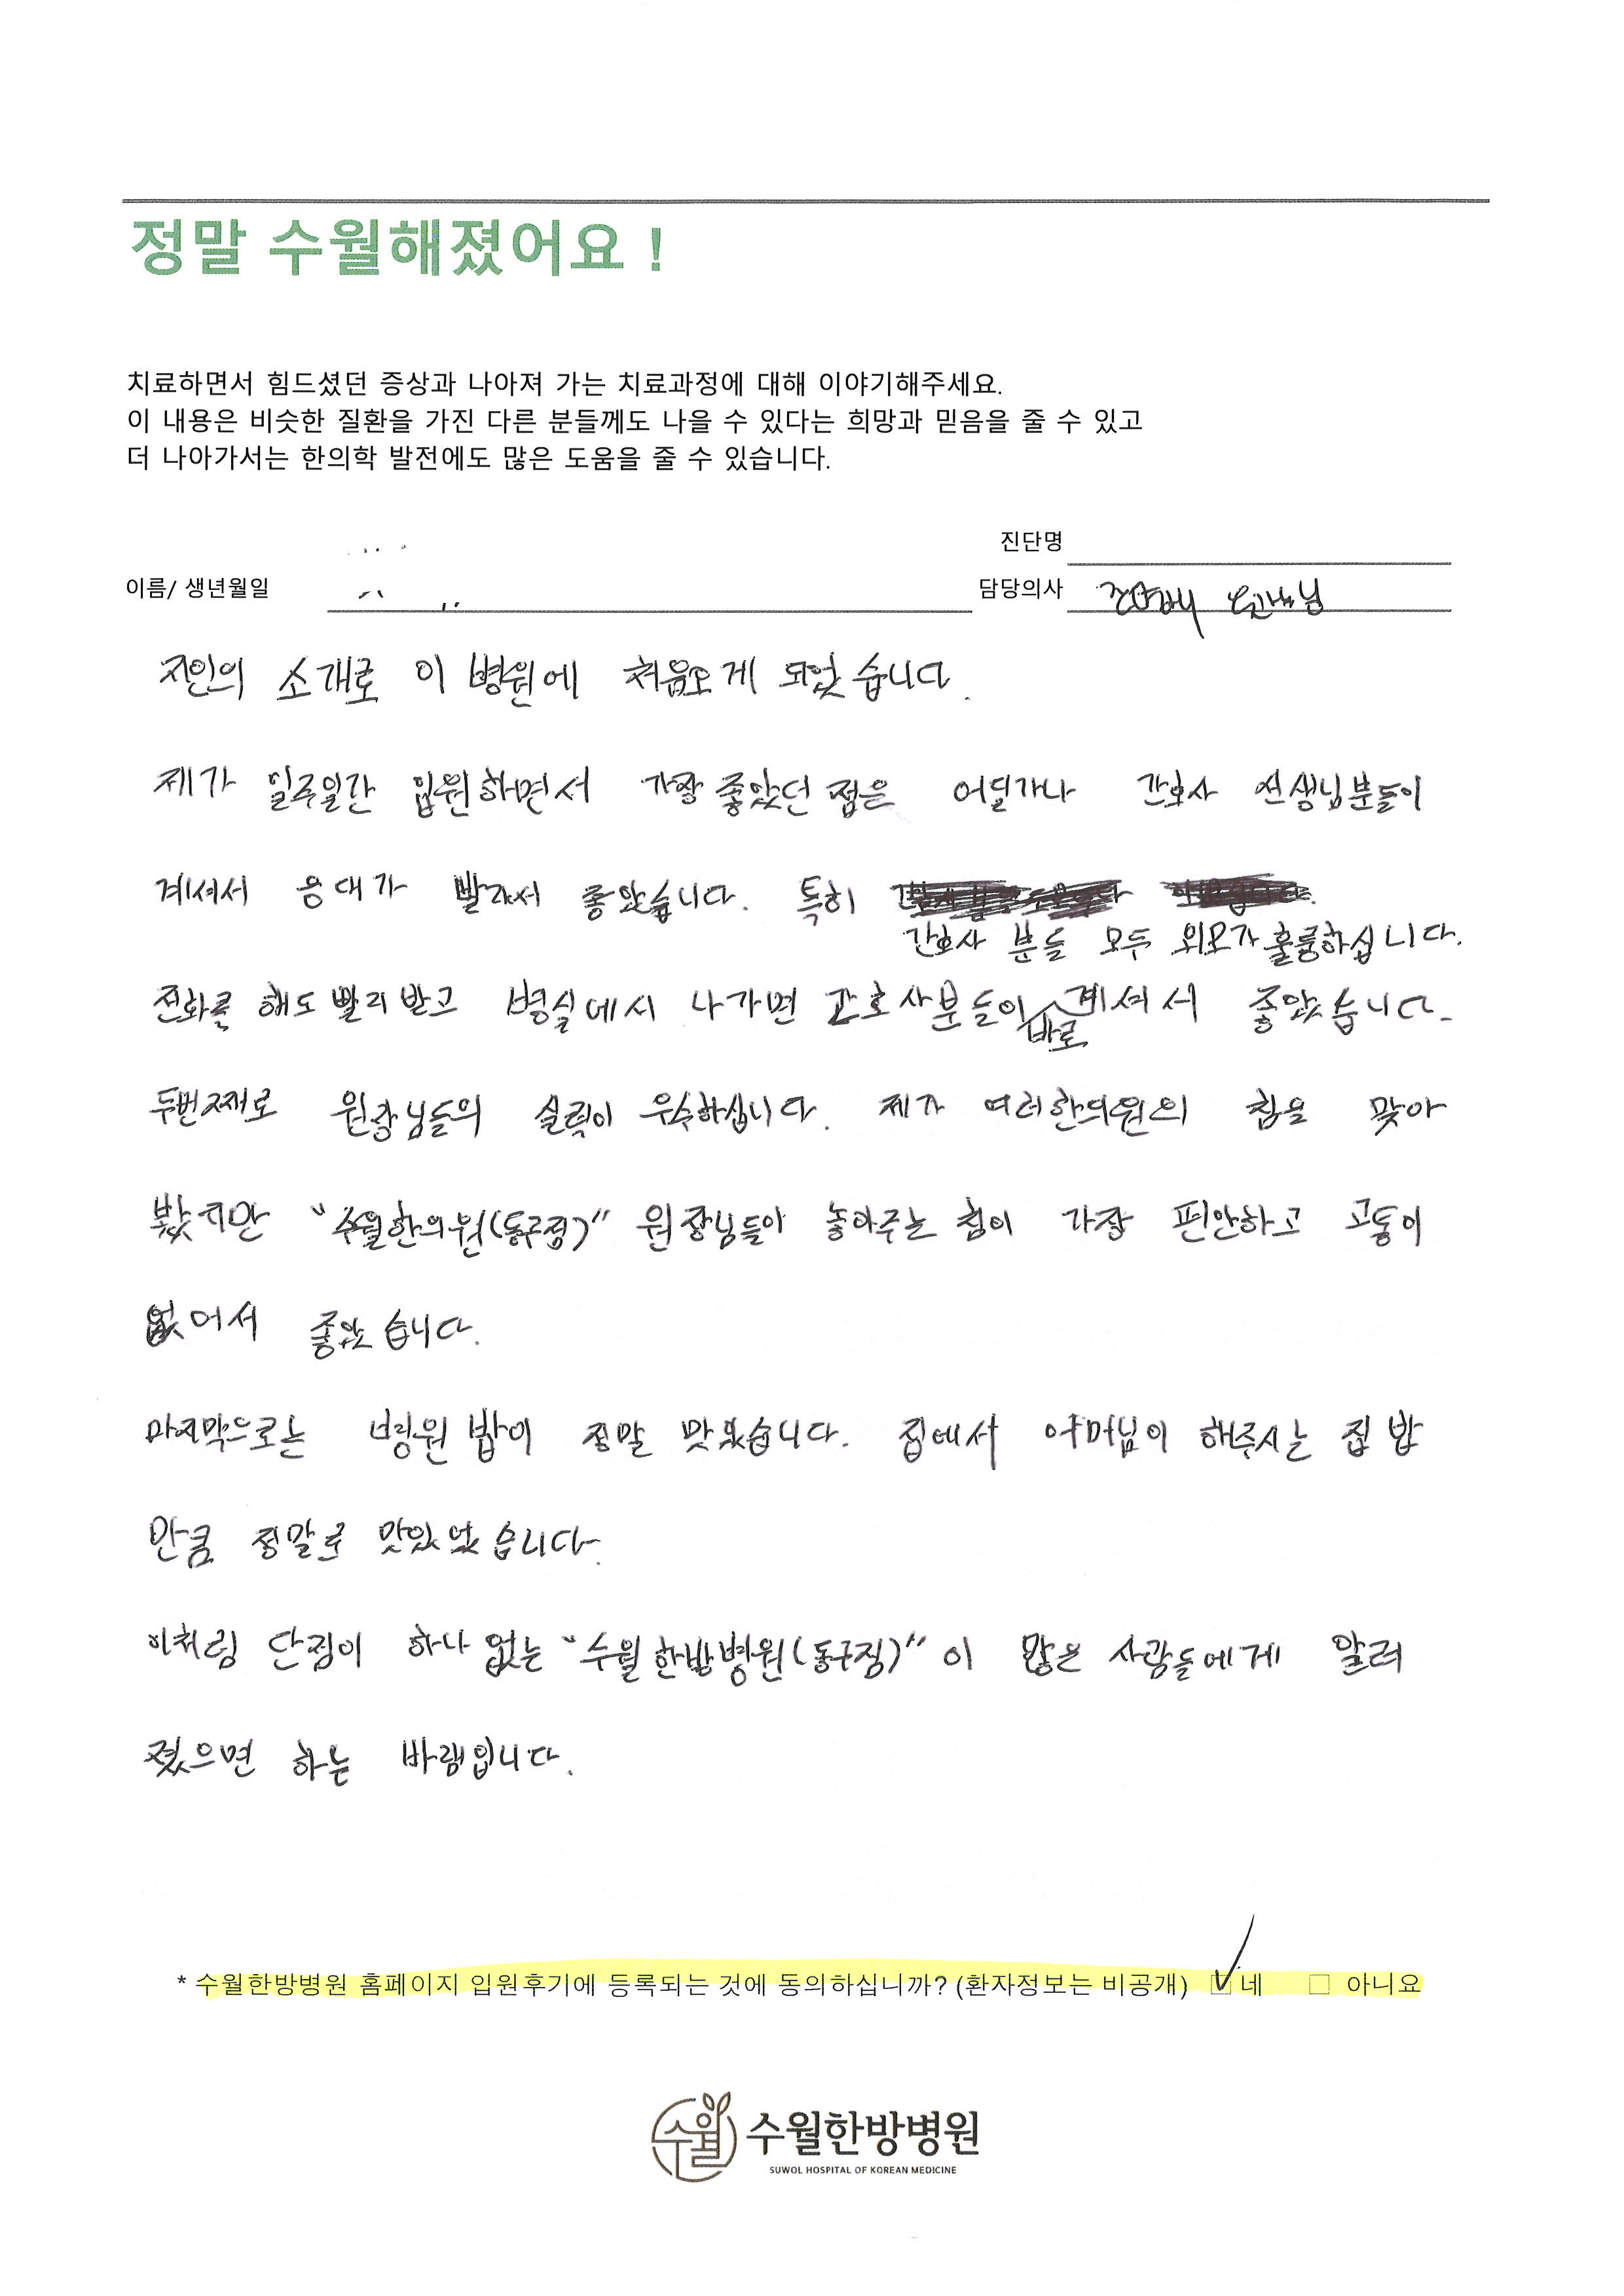 정말 수월해졌어요 !
치료하면서 힘드셨던 증상과 나아져 가는 치료과정에 대해 이야기해주세요.
이 내용은 비슷한 질환을 가진 다른 분들께도 나을 수 있다는 희망과 믿음을 줄 수 있고
더 나아가서는 한의학 발전에도 많은 도움을 줄 수 있습니다.
진단명
이름/ 생년월일
담당의사
지인의 소개로 이 병원에 처음오게 되었습니다.
제가 일주일간 입원하면서 가장 좋았던 점은 어딜가나 간호사 선생님분들이
계셔서 응대가 빨라서 좋았습니다. 특히
간호사 분들 모두 외모가 훌륭하십니다.
전화를 해도 빨리 받고 병실에서 나가면 간호사분들이 바로 계셔서 좋았습니다.
두번째로 원장님들의 실력이 우수하십니다. 제가 여러한의원의 침을 맞아
봤지만 "수월한의원(동구점)" 원장님들이 놓아주는 침이 가장 편안하고 고통이
없어서 좋았습니다.
마지막으로는 병원 밥이 정말 맛있습니다. 집에서 어머님이 해주시는 집 밥
만큼 정말로 맛있었습니다.
이처럼 단점이 하나 없는 "수월한방병원(동구점)"이 많은 사람들에게 알려
졌으면 하는 바램입니다.
* 수월한방병원 홈페이지 입원후기에 등록되는 것에 동의하십니까? (환자정보는 비공개) ☑ 네 □ 아니요
수월 수월한방병원
SUWOL HOSPITAL OF KOREAN MEDICINE